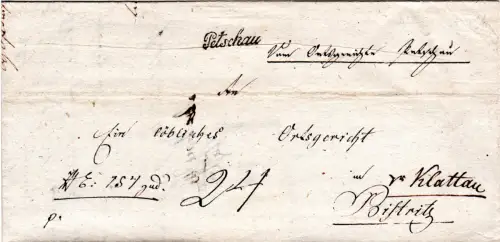 Petschau
Vom Ortsgerichte Petschau
An
Ein löbliches Ortsgericht
N E: 157 jud.
in pr Klattau
Bistritz
p.